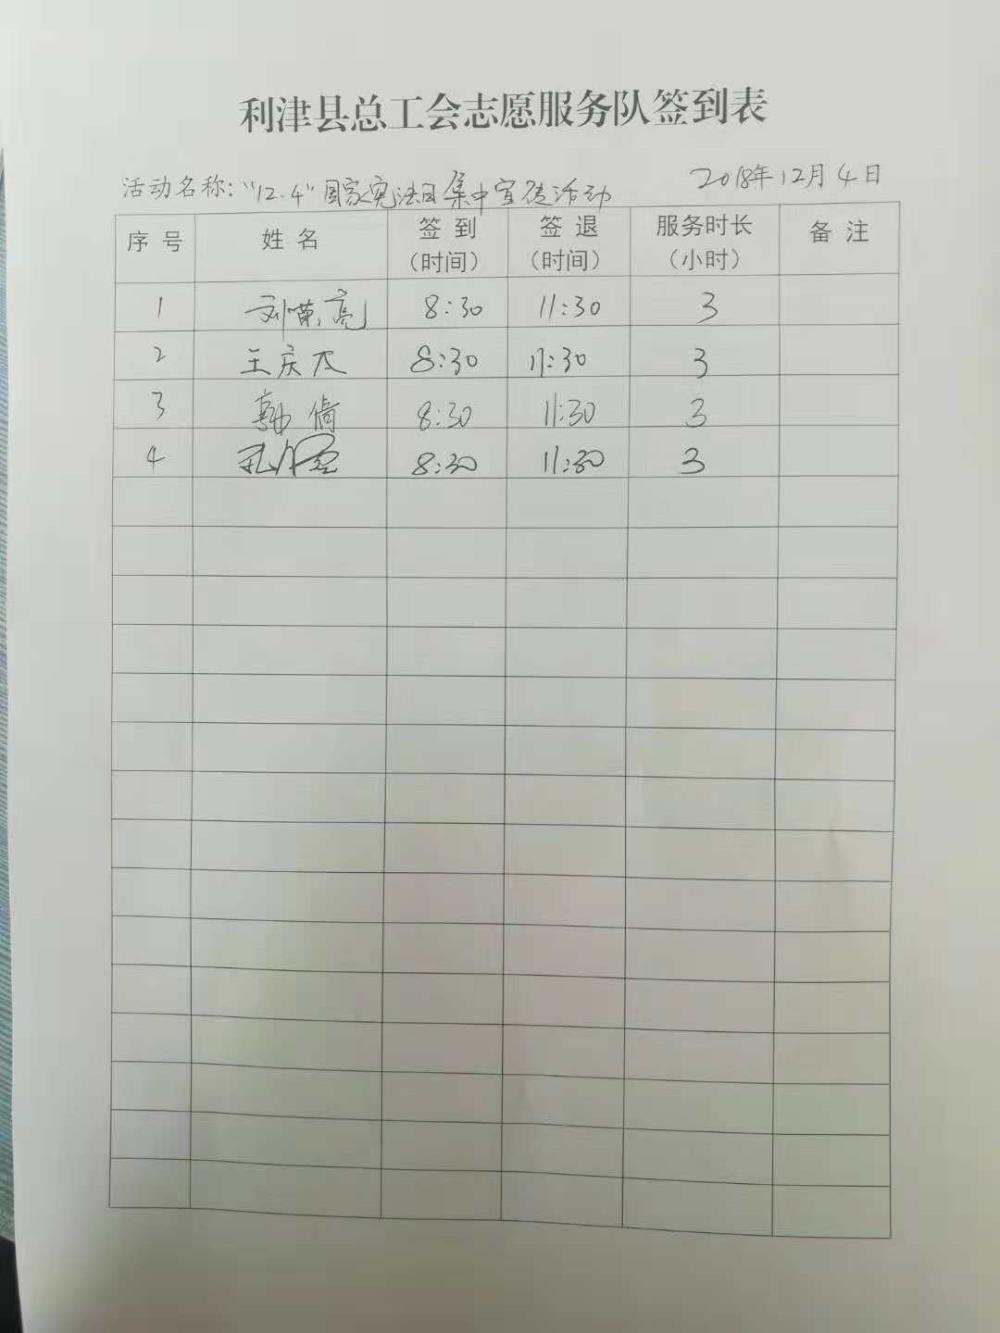 利津县总工会志愿服务队签到表
活动名称："12.4"国家宪法日集中宣传活动 2018年12月4日
序号 姓名 签到（时间） 签退（时间） 服务时长（小时） 备注
1 刘 亮 8:30 11:30 3
2 王庆 8:30 11:30 3
3 郭倩 8:30 11:30 3
4 8:30 11:30 3